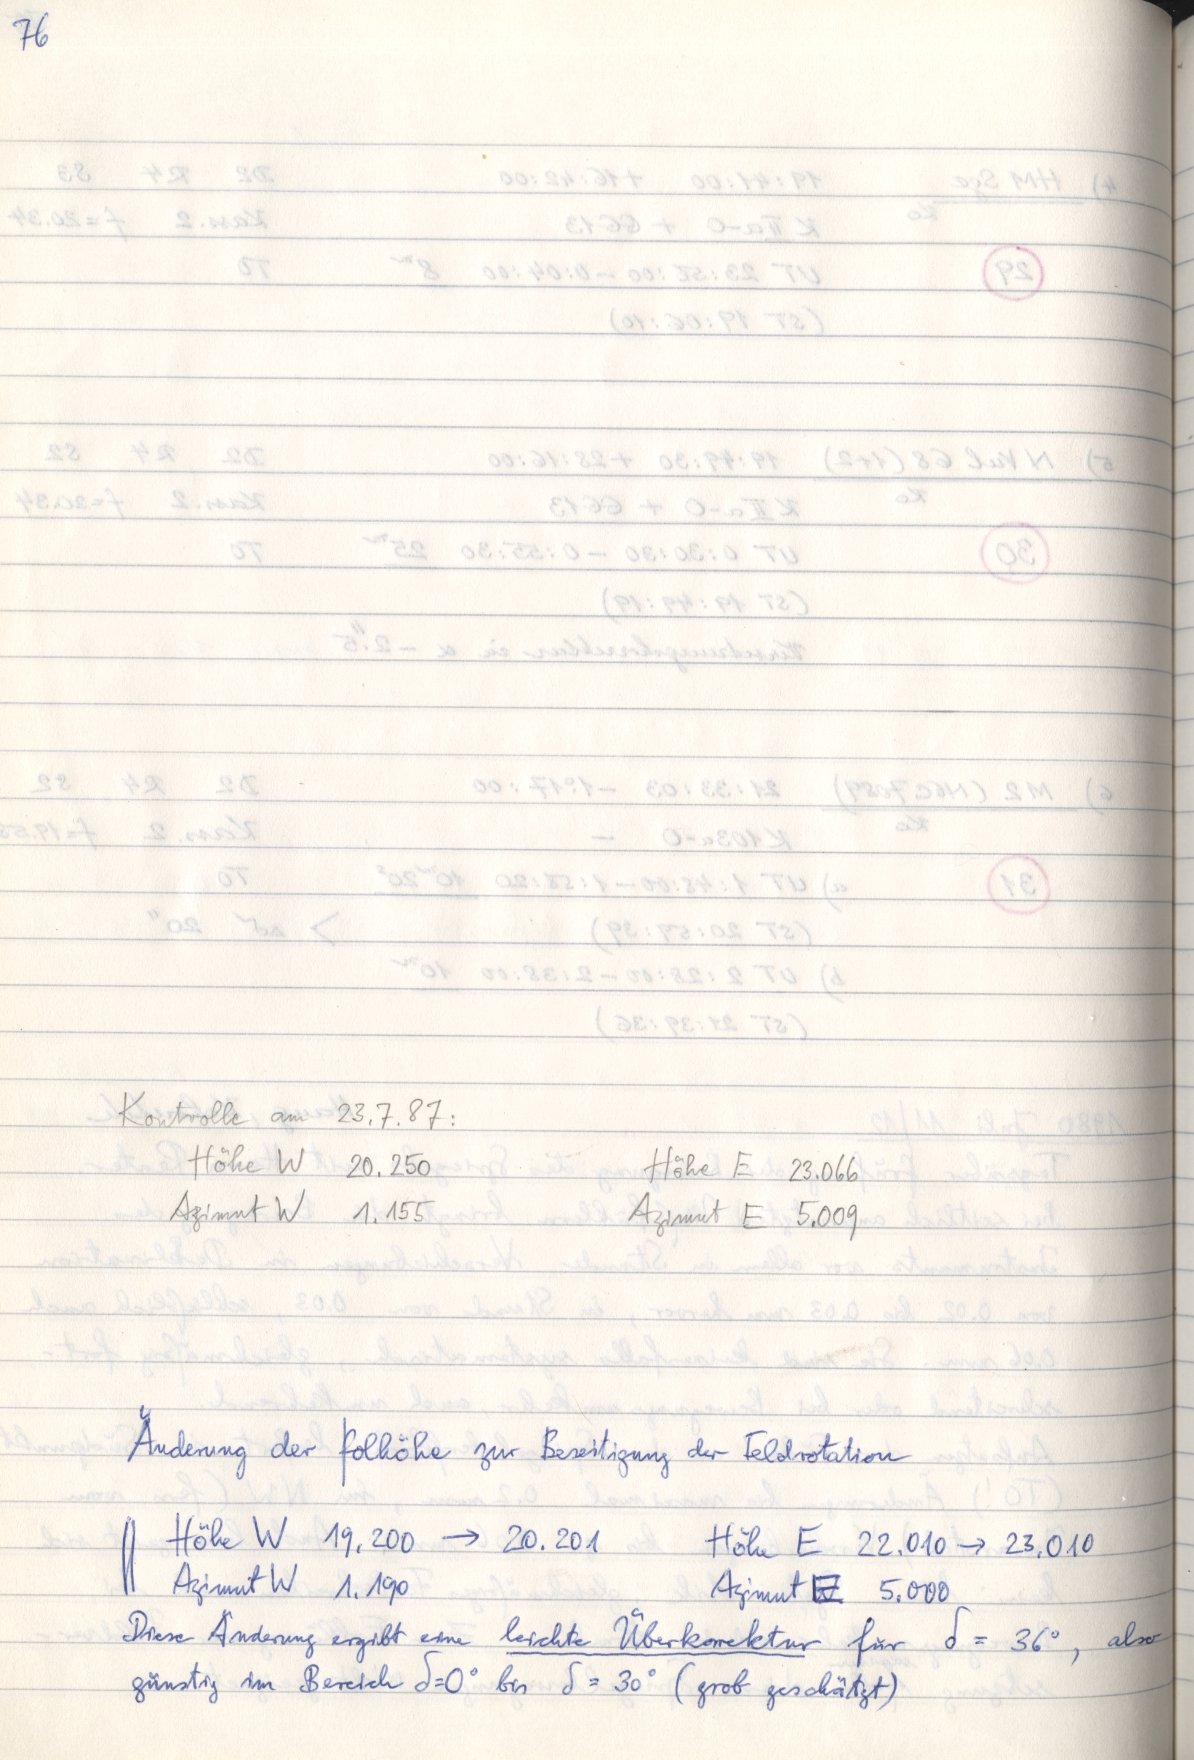 76
Kontrolle am 23.7.87:
Höhe W 20.250 Höhe E 23.066
Azimut W 1.155 Azimut E 5.009
Änderung der Polhöhe zur Beseitigung der Feldrotation
Höhe W 19,200 → 20.201 Höhe E 22.010 → 23.010
Azimut W 1.190 Azimut E 5.000
Diese Änderung ergibt eine leichte Überkorrektur für δ = 36°, also
günstig im Bereich δ=0° bis δ = 30° (grob geschätzt)